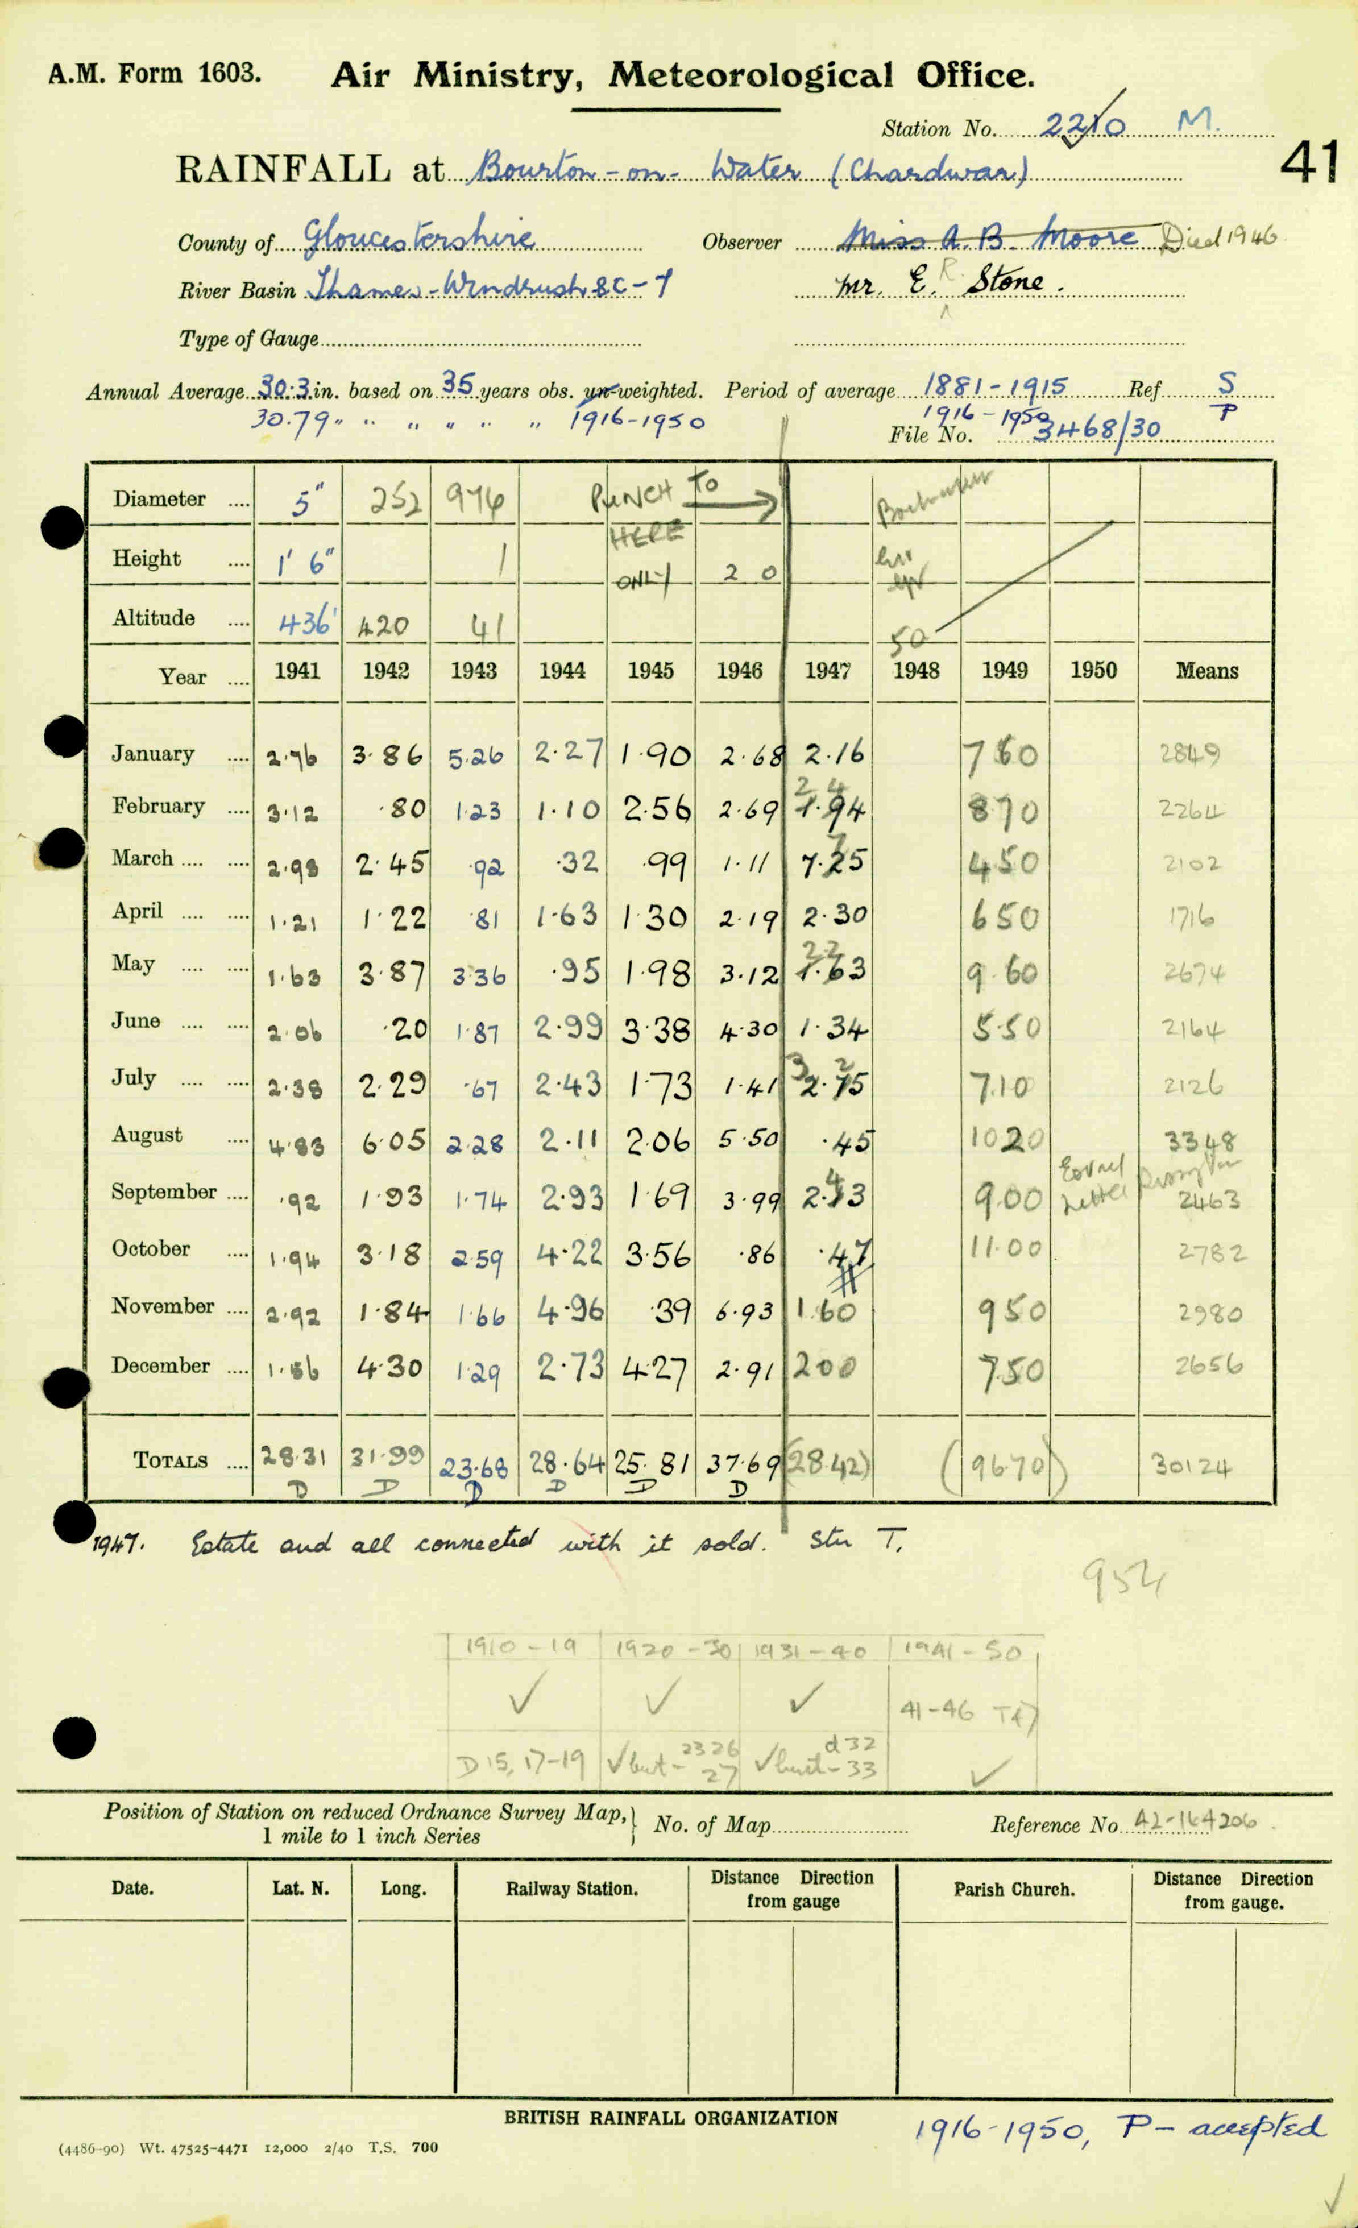 A.M. Form 1603. Air Ministry, Meteorological Office.
Station No. 2210 M.
41
RAINFALL at Bourton-on-Water (Chardwar)
County of Gloucestershire Observer Miss A. B. Moore Died 1946
River Basin Thames-Windrush 8C-7 Mr. E. R. Stone.
Type of Gauge
Annual Average 30.3 in. based on 35 years obs. un-weighted. Period of average 1881-1915 Ref S
30.79 " " " " " " 1916-1950 1916-1950 P
File No. 3468/30
Diameter .... 5" 252 976 PUNCH TO
HERE
Height .... 1' 6" 1 ONLY 2 0
Altitude .... 436' 420 41 50
Year .... 1941 1942 1943 1944 1945 1946 1947 1948 1949 1950 Means
January .... 2.76 3.86 5.26 2.27 1.90 2.68 2.16 760 2849
2 4
February .... 3.12 .80 1.23 1.10 2.56 2.69 1.94 870 2264
7
March .... .... 2.98 2.45 .92 .32 .99 1.11 7.25 450 2102
April .... .... 1.21 1.22 .81 1.63 1.30 2.19 2.30 650 1716
2 2
May .... .... 1.63 3.87 3.36 .95 1.98 3.12 1.63 9.60 2674
June .... .... 2.06 .20 1.87 2.99 3.38 4.30 1.34 5.50 2164
3 2
July .... .... 2.38 2.29 .67 2.43 1.73 1.41 2.75 7.10 2126
August .... 4.83 6.05 2.28 2.11 2.06 5.50 .45 1020 3348
4
September .... .92 1.93 1.74 2.93 1.69 3.99 2.13 9.00 2463
October .... 1.94 3.18 2.59 4.22 3.56 .86 .47 11.00 2782
November .... 2.92 1.84 1.66 4.96 .39 6.93 1.60 950 2980
December .... 1.56 4.30 1.29 2.73 4.27 2.91 200 7.50 2656
TOTALS .... 28.31 31.99 23.68 28.64 25.81 37.69 (28.42) (9670) 30124
D D D D D D
1947. Estate and all connected with it sold. Stn T.
954
1910-19 1920-30 1931-40 1941-50
✓ ✓ ✓ 41-46 T47
D 15, 17-19 ✓ but - 23 26 27 ✓ but - d32 33 ✓
Position of Station on reduced Ordnance Survey Map, } No. of Map Reference No. 42-164206
1 mile to 1 inch Series
Date. Lat. N. Long. Railway Station. Distance Direction from gauge Parish Church. Distance Direction from gauge.
BRITISH RAINFALL ORGANIZATION
1916-1950, P - accepted
(4486-90) Wt. 47525-4471 12,000 2/40 T.S. 700